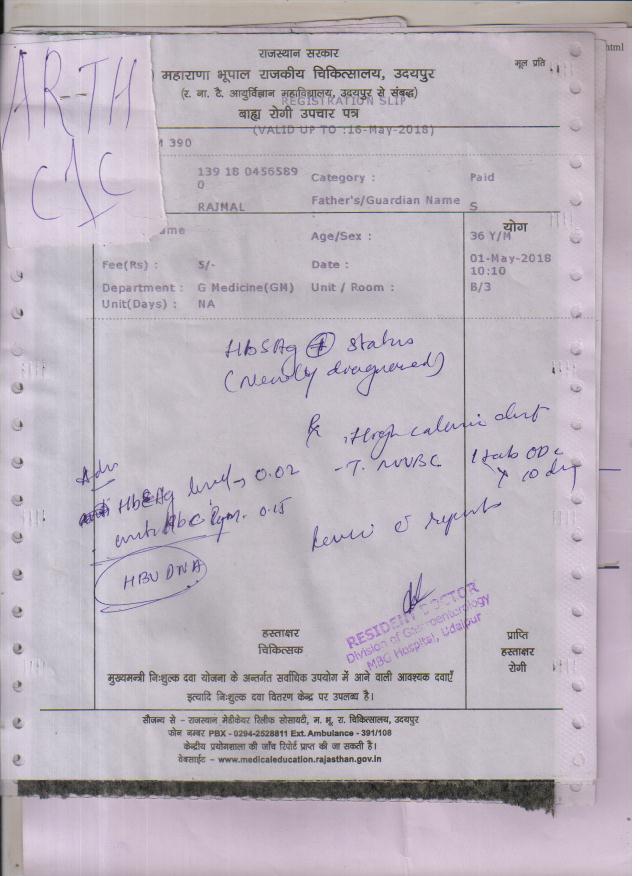 html
AR-TH
C1C
राजस्थान सरकार
मूल प्रति
महाराणा भूपाल राजकीय चिकित्सालय, उदयपुर
(र. ना. टै. आयुर्विज्ञान महाविद्यालय, उदयपुर से संबद्ध)
REGISTRATION SLIP
बाह्य रोगी उपचार पत्र
(VALID UP TO :16-May-2018)
390
139 18 0456589
0
Category : Paid
RAJMAL Father's/Guardian Name S
योग
Age/Sex : 36 Y/M
Fee(Rs) : 5/- Date : 01-May-2018
10:10
Department : G Medicine(GM) Unit / Room : B/3
Unit(Days) : NA
HBSAg + status
(Newly diagnosed)
Rx
High calorie diet
Adv
HBeAg level → 0.02
- T. NUVBC 1 tab OD
x 10 day
anti HBc Igm. 0.15
Review c reports
HBV DNA
RESIDENT DOCTOR
Division of Gastroenterology
MBG Hospital, Udaipur
हस्ताक्षर
चिकित्सक
प्राप्ति
हस्ताक्षर
रोगी
मुख्यमन्त्री निःशुल्क दवा योजना के अन्तर्गत सर्वाधिक उपयोग में आने वाली आवश्यक दवाएँ
इत्यादि निःशुल्क दवा वितरण केन्द्र पर उपलब्ध है।
सौजन्य से - राजस्थान मेडीकेयर रिलीफ सोसायटी, म. भू. रा. चिकित्सालय, उदयपुर
फोन नम्बर PBX - 0294-2528811 Ext. Ambulance - 391/108
केन्द्रीय प्रयोगशाला की जाँच रिपोर्ट प्राप्त की जा सकती है।
वेबसाईट - www.medicaleducation.rajasthan.gov.in